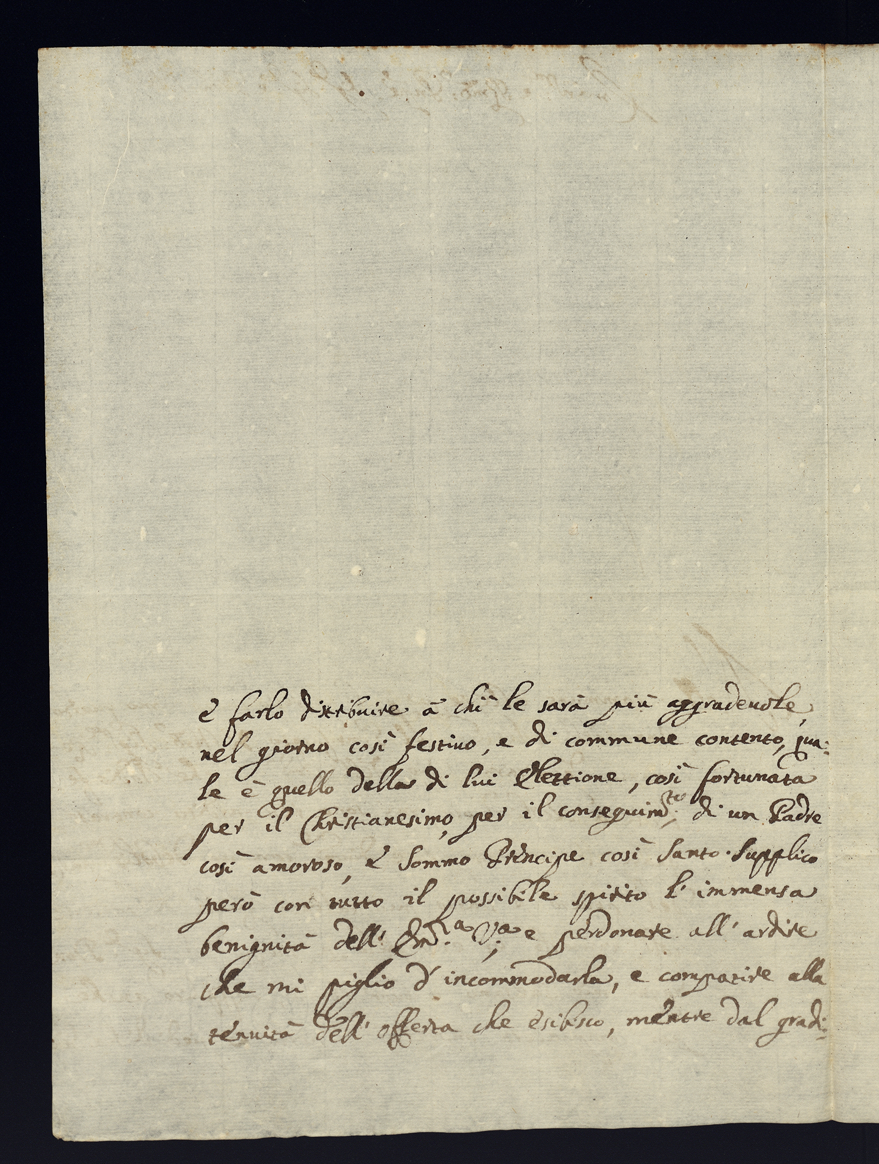 e farlo distribuire à chi le sarà più aggradeuole,
nel giorno così festiuo, e di commune contento, qua:
le è quello della di lui Elettione, così fortunata
per il Christianesimo, per il conseguim:to di un Padre
così amoroso, e Sommo Prencipe così Santo. Supplico
però con tutto il possibile spirito l'immensa
benignità dell' Em:a V:a e perdonare all' ardire
che mi piglio d'incommodarla, e compatire alla
tenuità dell' offerta che esibisco, mentre dal gradi: